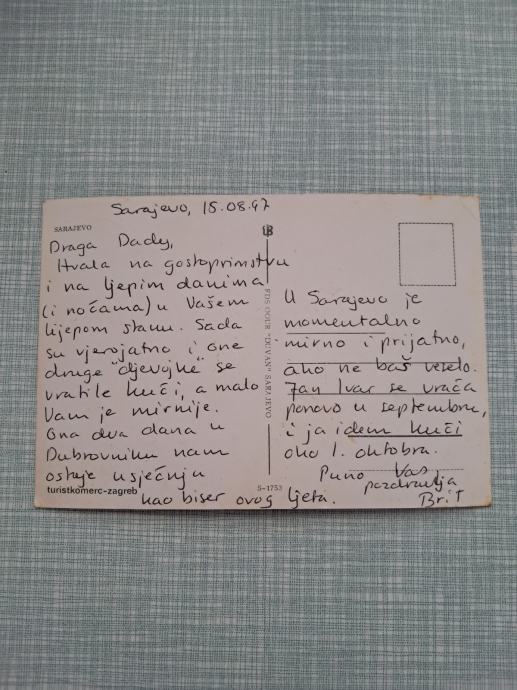 Sarajevo, 15.08.97
SARAJEVO
Draga Dady,
Hvala na gostoprimstvu
i na ljepim danima
(i noćama) u Vašem
lijepom stanu. Sada
su vjerojatno i one
druge "djevojke" se
vratile kući, a malo
Vam je mirnije.
Ona dva dana u
Dubrovniku nam
ostaje u sjećnju
kao biser ovog ljeta.
turistkomerc-zagreb
FDS OOUR "DUVAN" SARAJEVO
S-1753
U Sarajevo je
momentalno
mirno i prijatno,
ako ne baš veselo.
Jan Ivar se vraća
ponovo u septembru,
i ja idem kući
oko 1. oktobra.
Puno Vas
pozdravlja
Brit